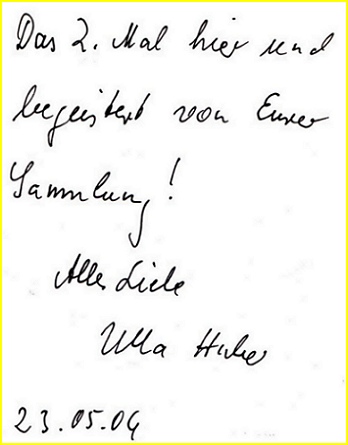 Das 2. Mal hier und
begeistert von Eurer
Sammlung!
Alles Liebe
Ulla Huber
23.05.04